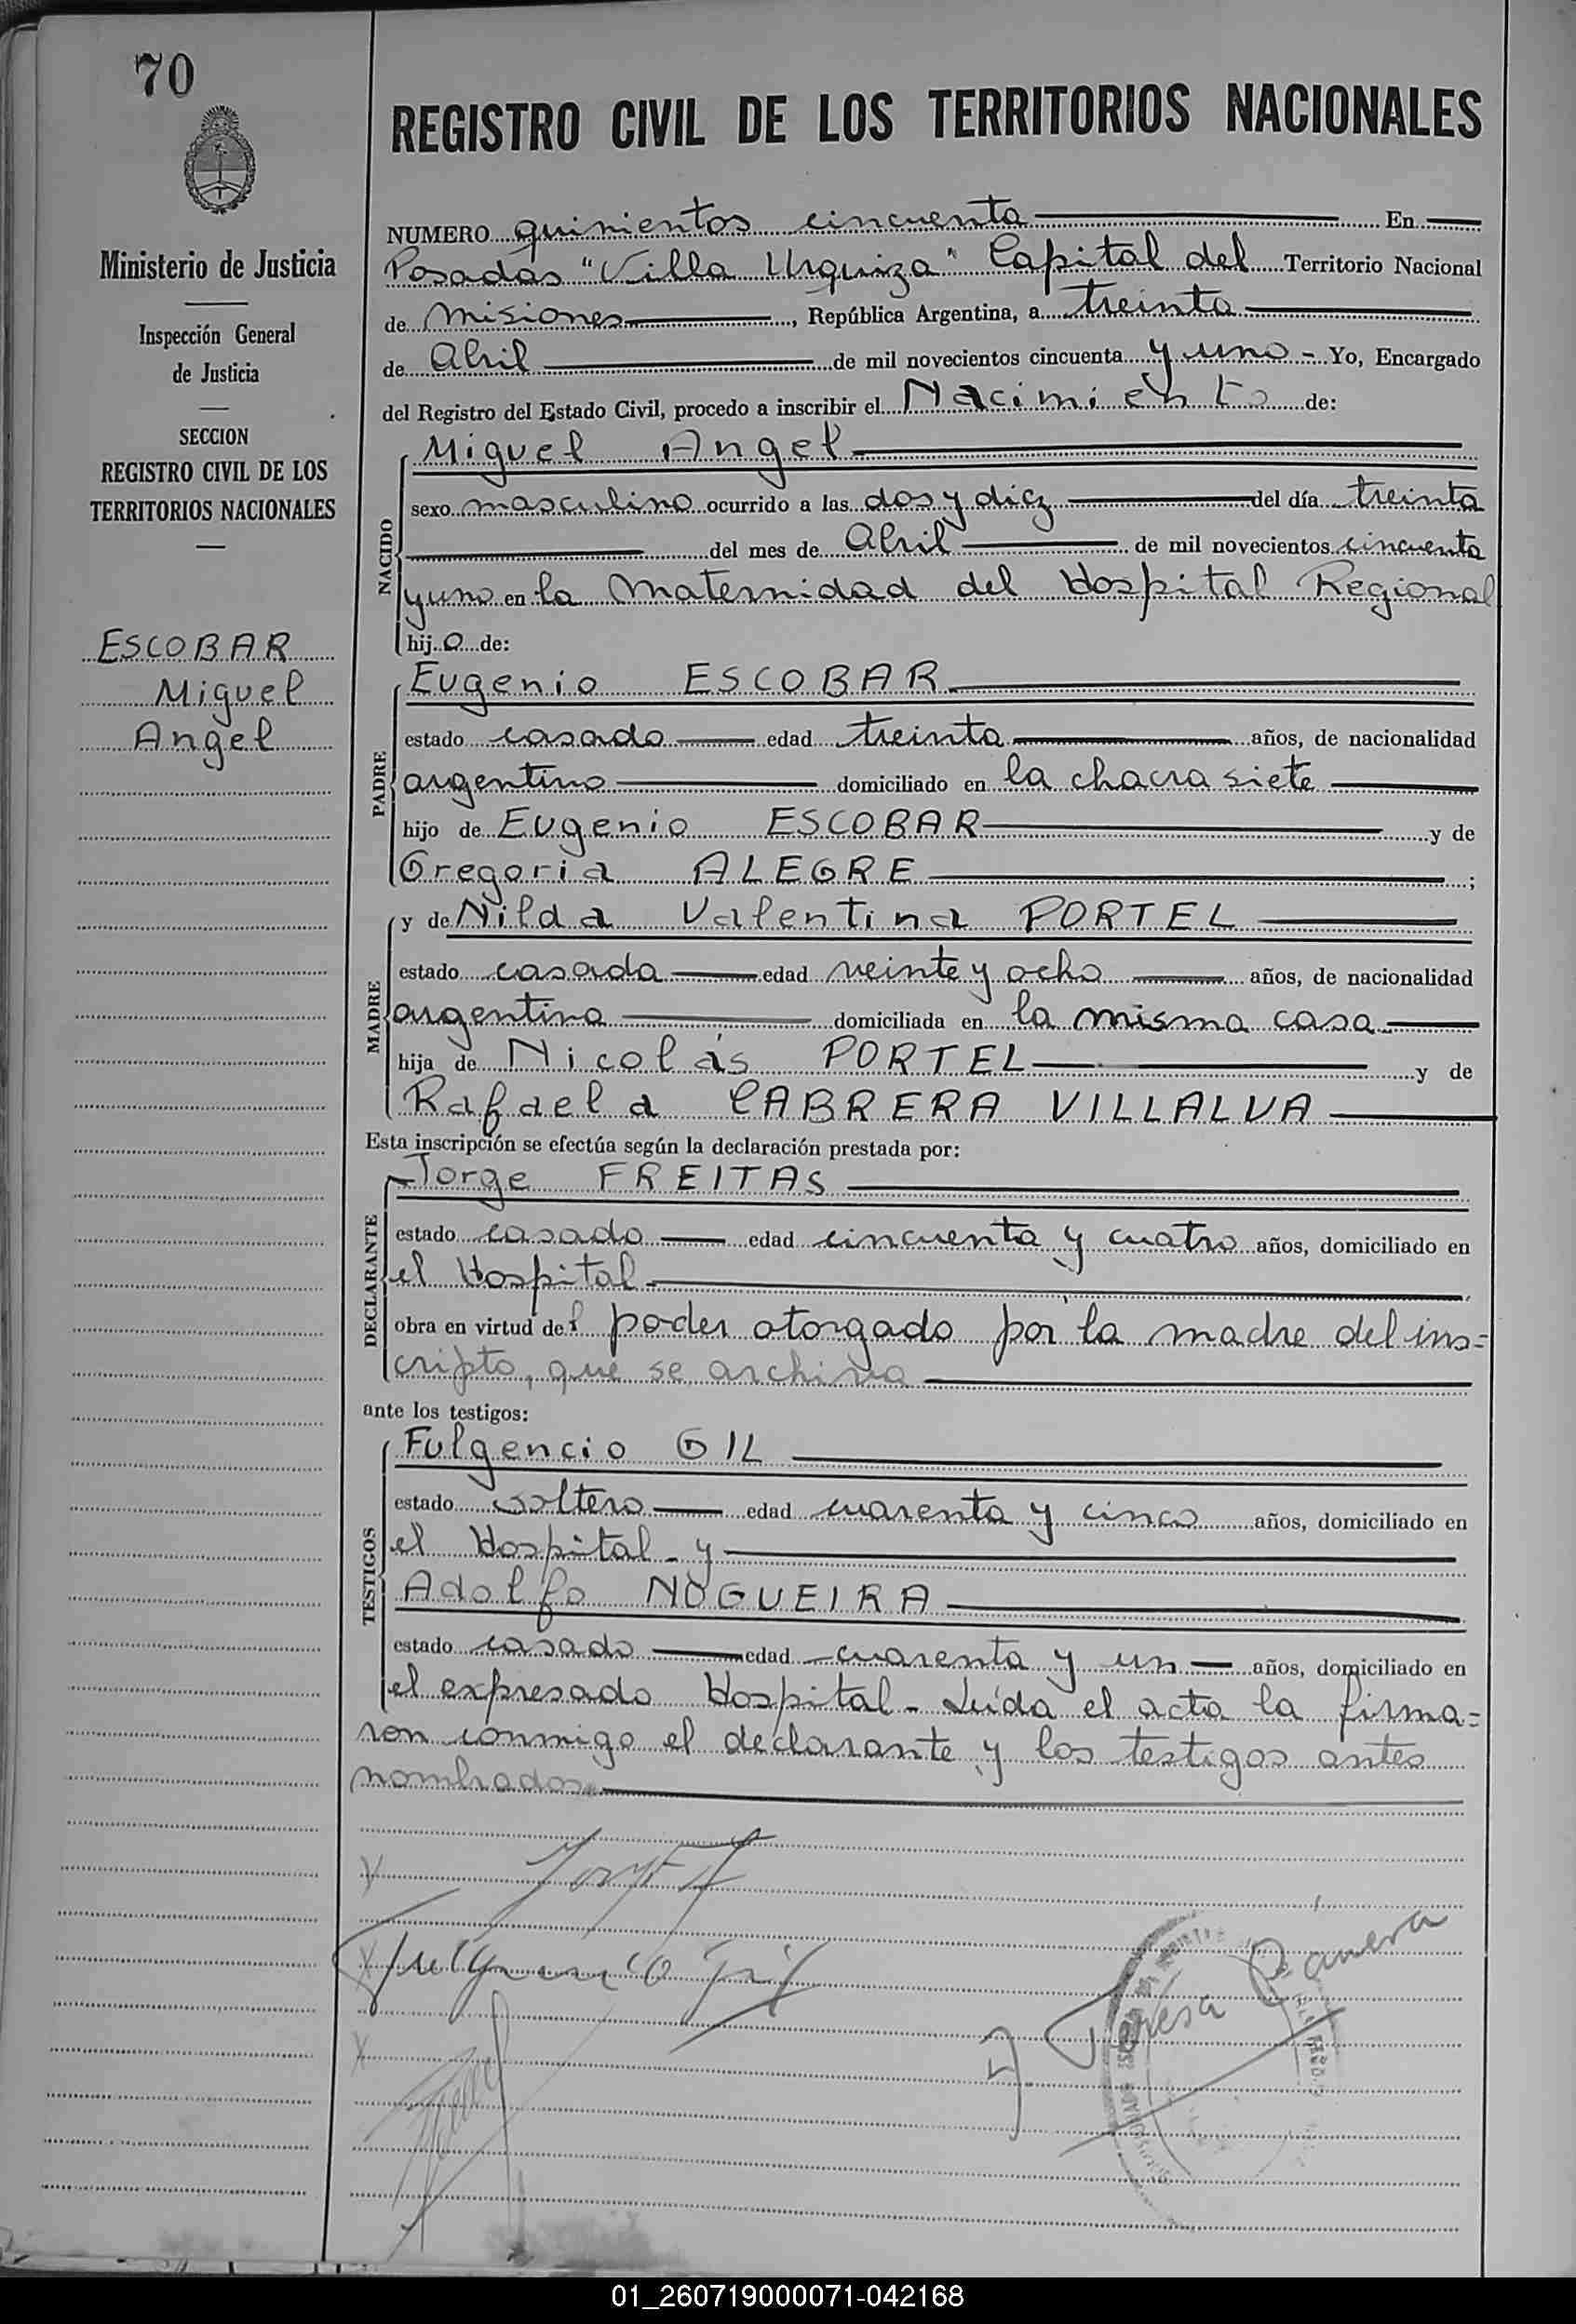 70
REGISTRO CIVIL DE LOS TERRITORIOS NACIONALES
Ministerio de Justicia
Inspección General
de Justicia
SECCION
REGISTRO CIVIL DE LOS
TERRITORIOS NACIONALES
ESCOBAR
Miguel
Angel
NUMERO quinientos cincuenta En
Posadas "Villa Urquiza" Capital del Territorio Nacional
de Misiones, República Argentina, a treinta
de Abril de mil novecientos cincuenta y uno - Yo, Encargado
del Registro del Estado Civil, procedo a inscribir el Nacimiento de:
NACIDO
Miguel Angel
sexo masculino ocurrido a las dos y diez del día treinta
del mes de Abril de mil novecientos cincuenta
y uno en la Maternidad del Hospital Regional
hijo de:
PADRE
Eugenio ESCOBAR
estado casado edad treinta años, de nacionalidad
argentino domiciliado en la chacra siete
hijo de Eugenio ESCOBAR y de
Gregoria ALEGRE ;
MADRE
y de Nilda Valentina PORTEL
estado casada edad veinte y ocho años, de nacionalidad
argentina domiciliada en la misma casa
hija de Nicolás PORTEL y de
Rafaela CABRERA VILLALVA
Esta inscripción se efectúa según la declaración prestada por:
DECLARANTE
Jorge FREITAS
estado casado edad cincuenta y cuatro años, domiciliado en
el Hospital
obra en virtud del poder otorgado por la madre del ins=
cripto, que se archiva
ante los testigos:
TESTIGOS
Fulgencio GIL
estado soltero edad cuarenta y cinco años, domiciliado en
el Hospital - y
Adolfo NOGUEIRA
estado casado edad cuarenta y un años, domiciliado en
el expresado Hospital - Leída el acta la firma=
ron conmigo el declarante y los testigos antes
nombrados
Fulgencio Gil
Teresa
01_260719000071-042168